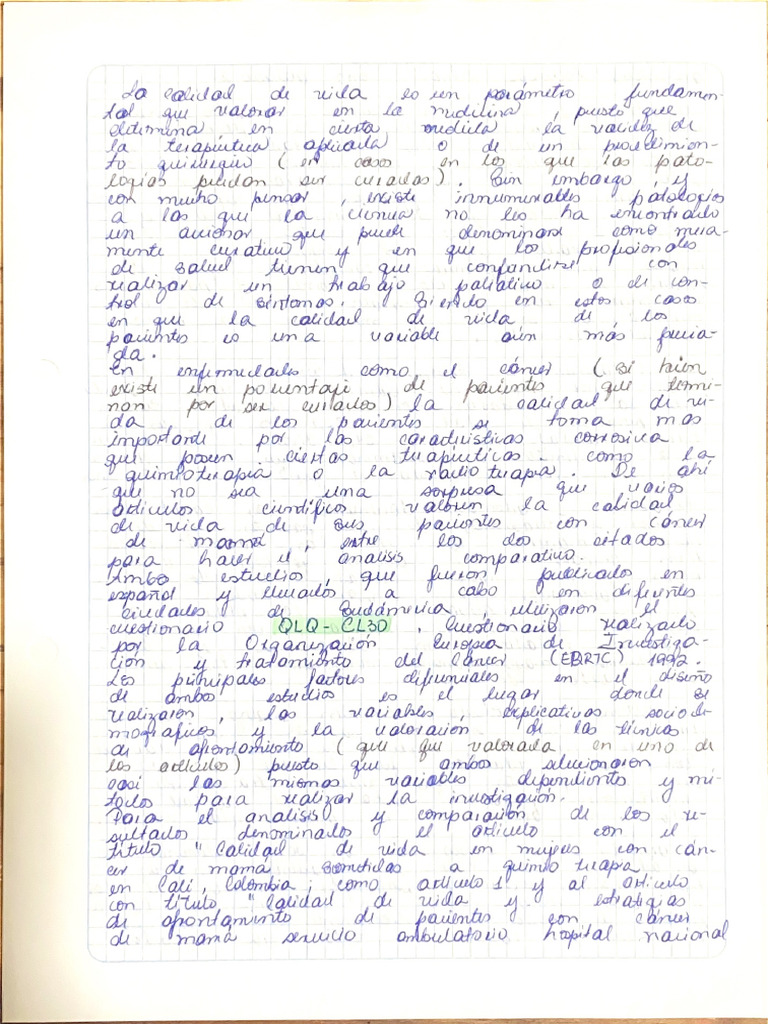 La calidad de vida es un parámetro fundamen-
tal que valorar en la medicina, puesto que
determina en cierta medida la validez de
la terapéutica aplicada o de un procedimien-
to quirúrgico (en casos en los que las pato-
logías puedan ser curadas). Sin embargo, y
con mucho pensar, existe innumerables patologías
a las que la ciencia no les ha encontrado
un accionar que puede denominarse como mera-
mente curativo y en que los profesionales
de salud tienen que confundirse con
realizar un trabajo paliativo o de con-
trol de síntomas. Siendo en estos casos
en que la calidad de vida de los
pacientes es una variable aún más precia-
da.
En enfermedades como el cáncer (si bien
existe un porcentaje de pacientes que termi-
nan por ser curados) la calidad de vi-
da de los pacientes se toma mas
importante por las características corrosiva
que poseen ciertas terapéuticas. como la
quimioterapia o la radioterapia. De ahí
que no sea una sorpresa que varios
artículos científicos valoren la calidad
de vida de sus pacientes con cáncer
de mama, entre los dos citados
para hacer el analisis comparativo.
Ambos estudios, que fueron publicados en
español y llevados a cabo en diferentes
ciudades de Sudámerica, utilizaron el
cuestionario QLQ-CL30. Cuestionario realizado
por la Organización Europea de Investiga-
ción y tratamiento del Cáncer (EORTC) 1992.
Los principales factores diferenciales en el diseño
de ambos estudios es el lugar donde se
realizaron, las variables, explicativas sociode-
mográficos y la valoración de las técnicas
de afrontamiento (que que valorada en uno de
los artículos) puesto que ambos selecionaron
casi las mismas variables dependientes y mé-
todos para realizar la investigación.
Para el analisis y comparación de los re-
sultados denominados el artículo con el
título "Calidad de vida en mujeres con cán-
cer de mama sometidas a quimioterapia
en Cali, Colombia; como artículo 1 y al artículo
con título "Calidad de vida y estratigias
de afrontamiento de pacientes con cáncer
de mama servicio ambulatorio hospital nacional